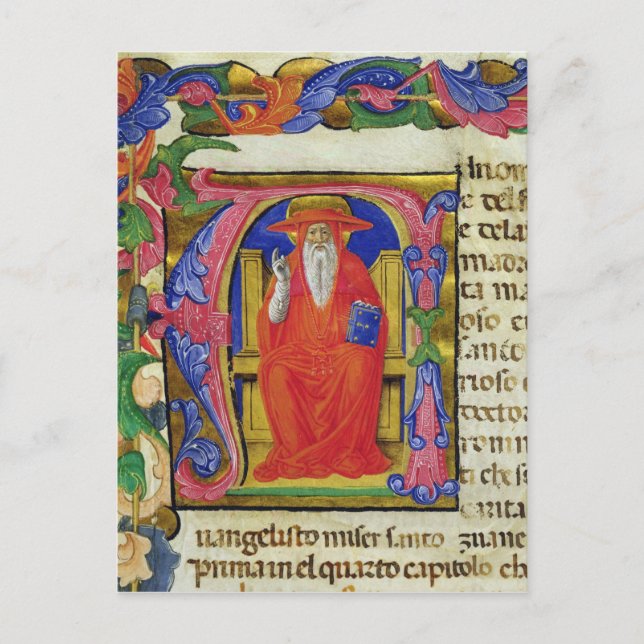 In om
e del
e dela
madr
ta ma
oso e
santo
rioso
rector
romi
ti che s
carita
uangelisto miser santo zuane
prima in el quarto capitolo ch